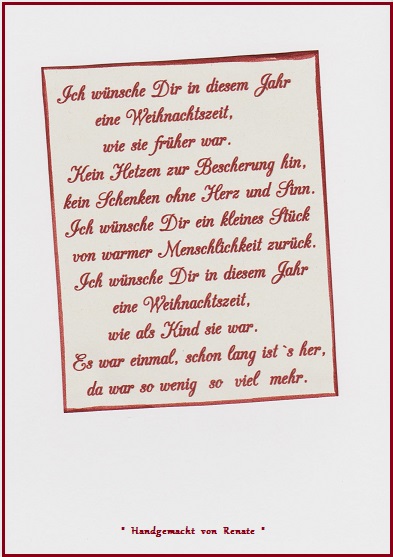 Ich wünsche Dir in diesem Jahr
eine Weihnachtszeit,
wie sie früher war.
Kein Hetzen zur Bescherung hin,
kein Schenken ohne Herz und Sinn.
Ich wünsche Dir ein kleines Stück
von warmer Menschlichkeit zurück.
Ich wünsche Dir in diesem Jahr
eine Weihnachtszeit,
wie als Kind sie war.
Es war einmal, schon lang ist`s her,
da war so wenig so viel mehr.
" Handgemacht von Renate "